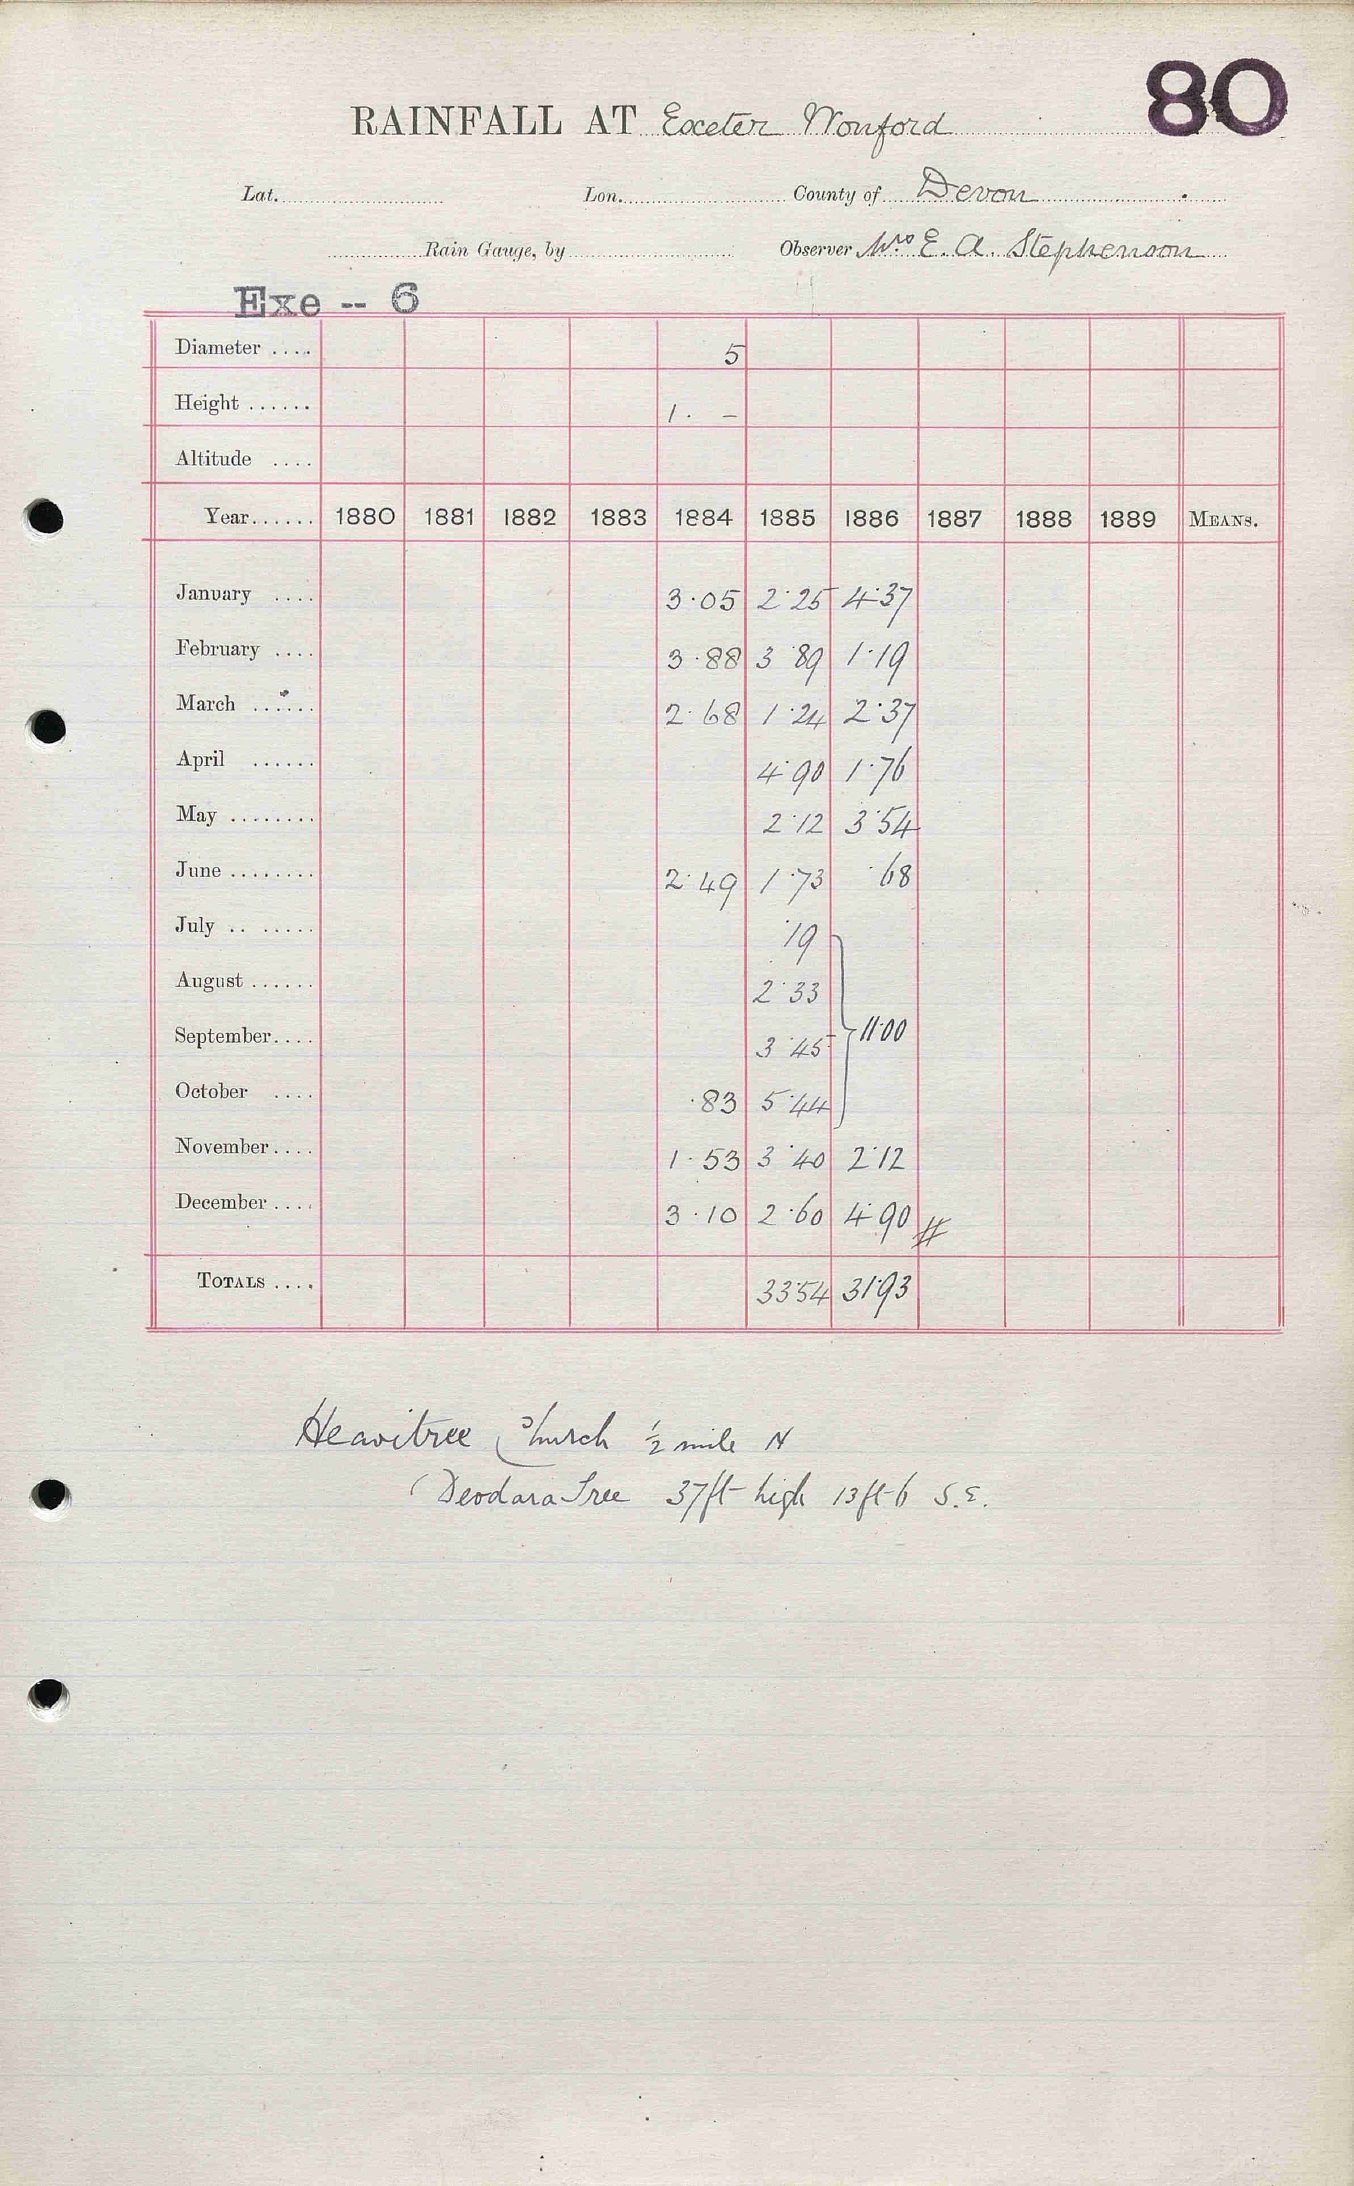 80
RAINFALL AT Exeter Wonford
Lat. Lon. County of Devon
Rain Gauge, by Observer Mrs E. A. Stephenson
Exe -- 6
Diameter .... 5
Height ...... 1. -
Altitude ....
Year...... 1880 1881 1882 1883 1884 1885 1886 1887 1888 1889 MEANS.
January .... 3.05 2.25 4.37
February .... 3.88 3 89 1.19
March ...... 2.68 1.24 2.37
April ...... 4.90 1.76
May ........ 2.12 3.54
June ........ 2.49 1.73 .68
July .. ..... .19
August ...... 2.33
September.... 3.45 11.00
October .... .83 5.44
November.... 1.53 3.40 2.12
December .... 3.10 2.60 4.90 #
TOTALS .... 33.54 31.93
Heavitree Church ½ mile N
Deodara Tree 37ft high 13ft 6 S.E.